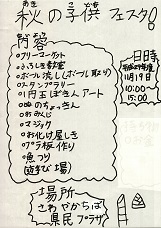 あき
秋の子供フェスタ!
内容
・フリーマーケット
・ふろしき教室
・ボール流し(ボール取り)
・スタンプラリー
・1円玉ばきんアート
・ぬのちょっきん
・おみくじ
・マジック
・お化け屋しき
・プラ板作り
・魚つり
(遊び場)
日時
11月19日
10:00〜
15:00
場所
さわやかちば
県民プラザ